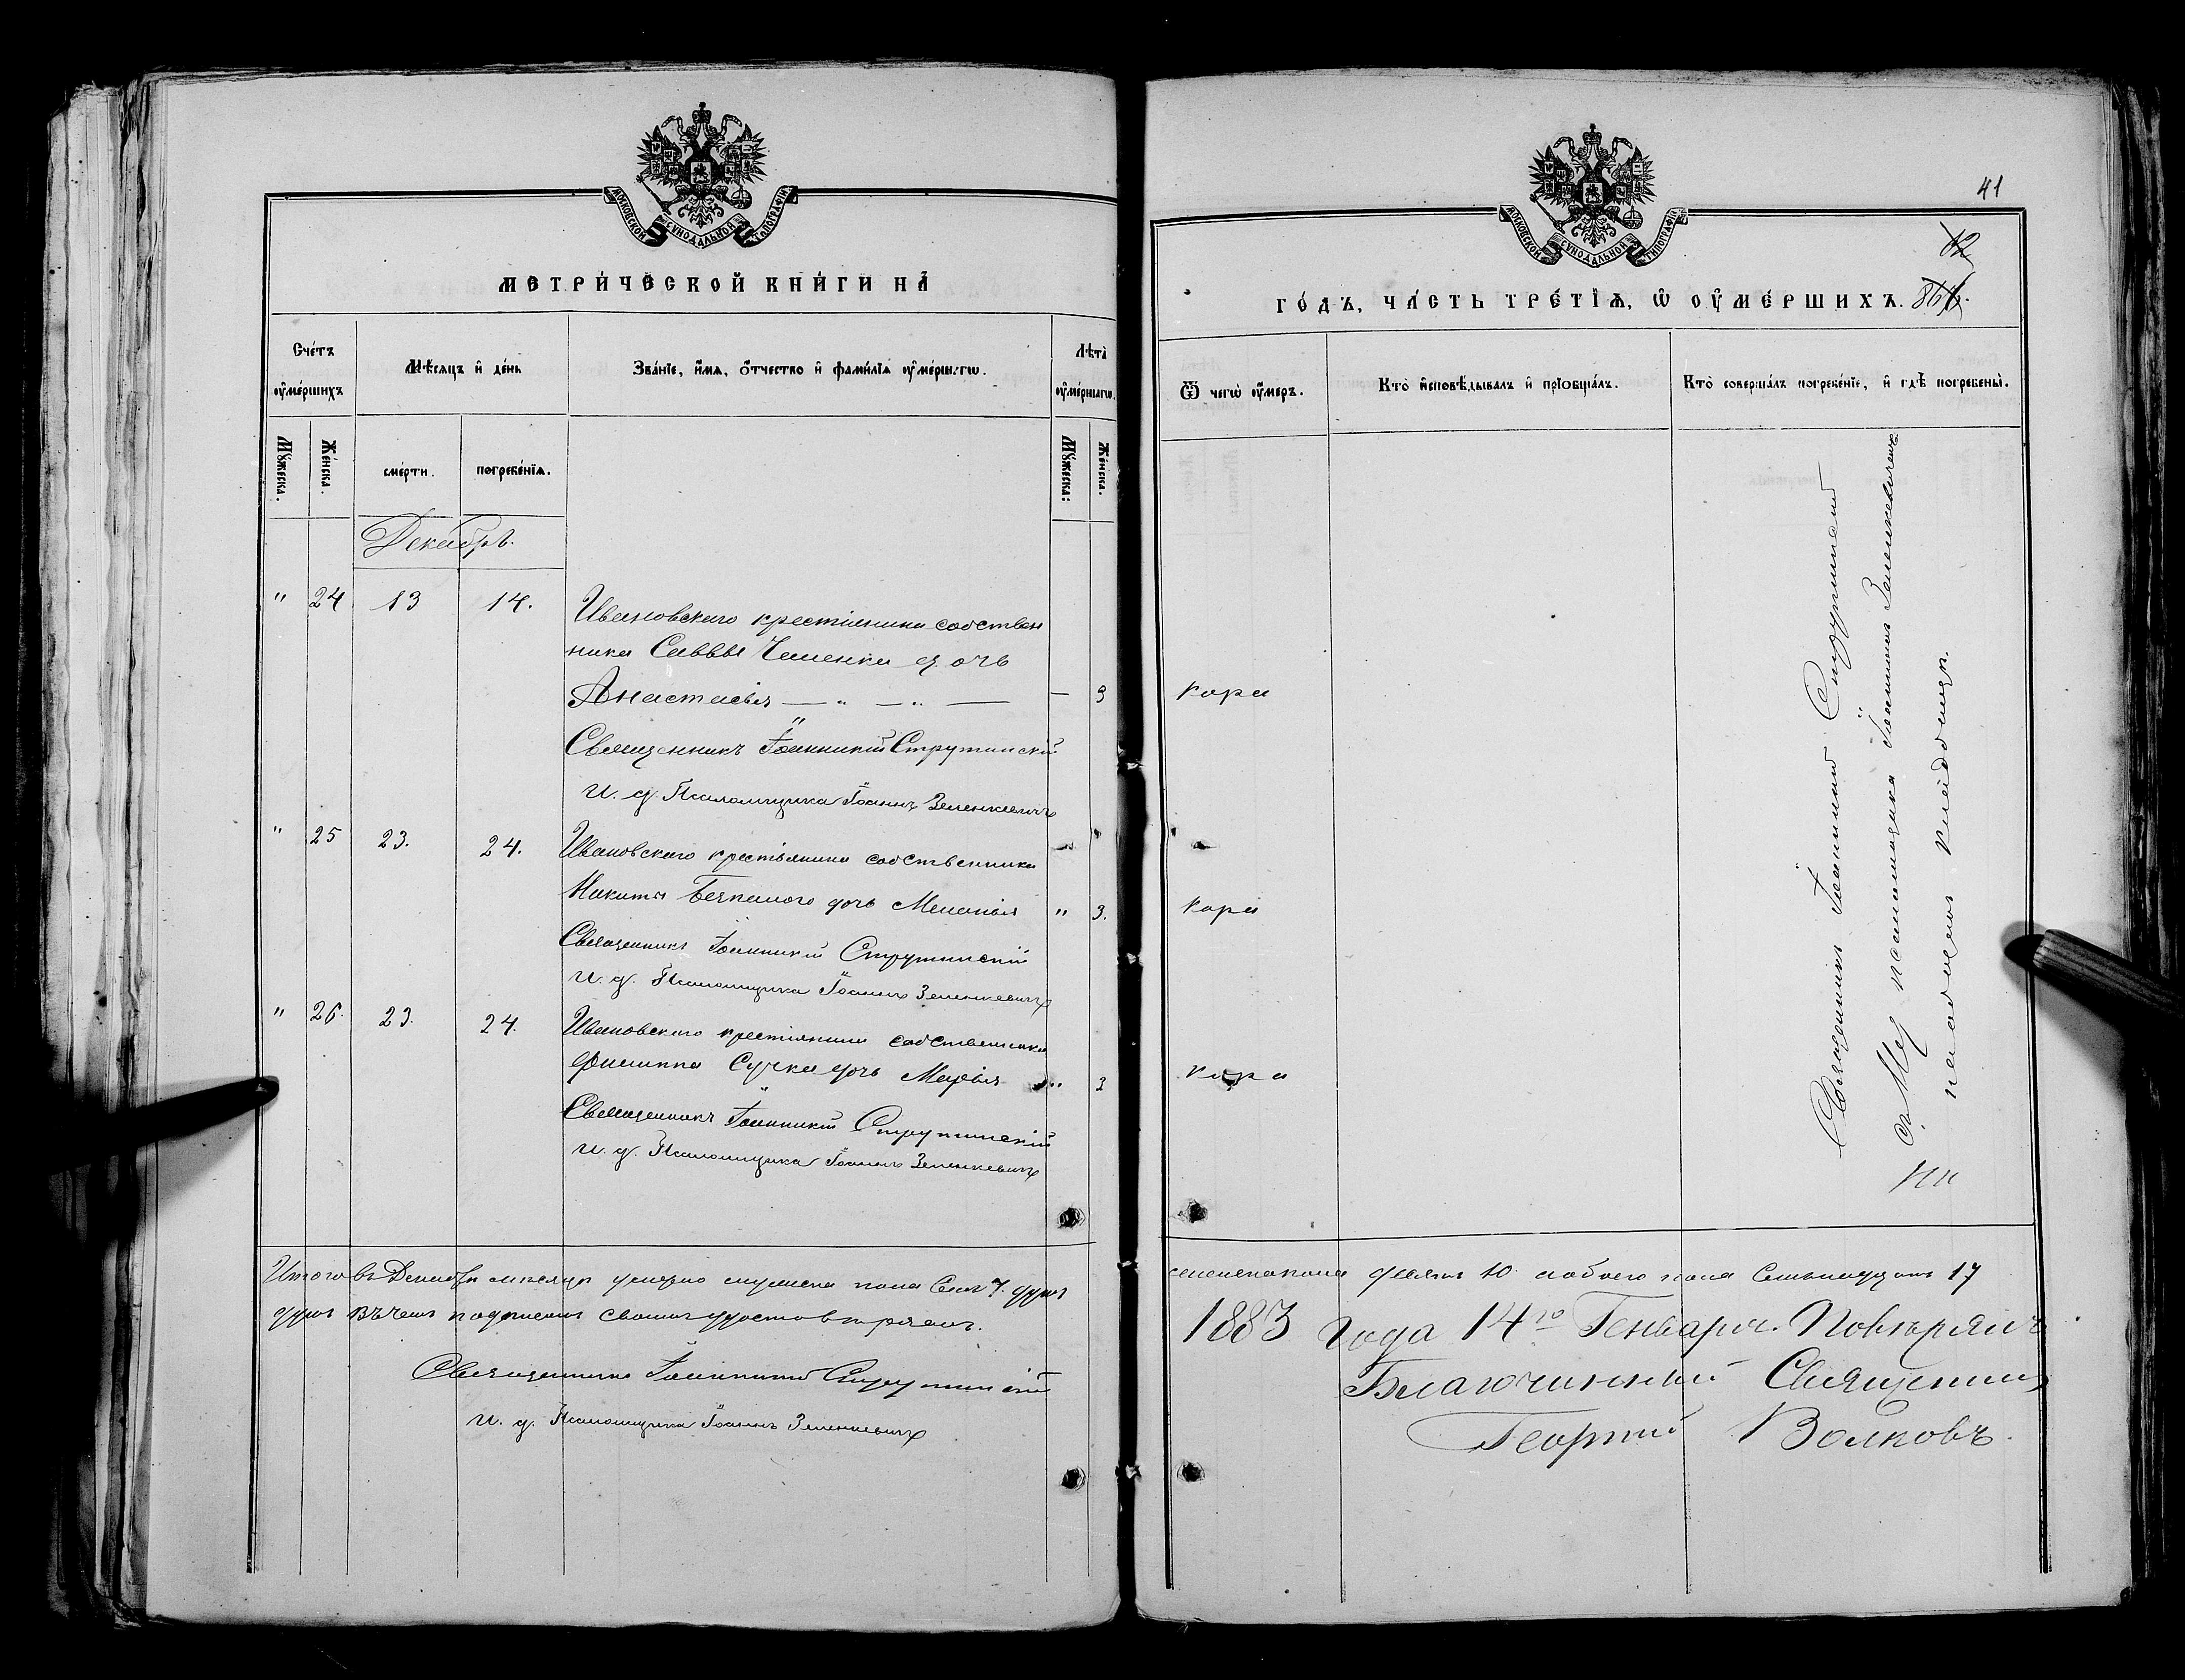 МОСКОВСКОЙ СѴНОДАЛЬНОЙ ТИПОГРАФІИ
МЕТРИ́ЧЕСКОЙ КНИ́ГИ НА̀
Сче́тъ ᲂу҆ме́ршихъ
Мѣ́сяцъ и҆ де́нь
Зва́нїе, и҆́мѧ, ѻ҆́тчество и҆ фами́лїѧ ᲂу҆ме́ршагѡ.
Лѣта̀ ᲂу҆ме́ршагѡ.
Мꙋ́жеска.
Же́нска.
сме́рти.
погребе́нїѧ.
Мꙋ́жеска:
Же́нска.
Декабрь.
" 24 13 14.
Ивановскаго крестьянина собствен
ника Саввы дочь
Анастасія — " — " — — 3
Священникъ Іоанникій Струтинскій
и. д. Псаломщика Іоаннъ Зеленкевичъ
" 25 23. 24. Ивановскаго крестьянина собственника
Никиты дочь Меланія " 3.
Священникъ Іоанникій Струтинскій
и. д. Псаломщика Іоаннъ Зеленкевичъ
" 26. 23. 24. Ивановскаго крестьянина собственника
Филиппа Сучка дочь Марія " 3
Священникъ Іоанникій Струтинскій
и. д. Псаломщика Іоаннъ Зеленкевичъ
Итого въ Декабрѣ мѣсяцѣ умерло мужеска пола Семь 7. душъ
душъ въ чемъ подписомъ своимъ удостовѣряемъ.
Священникъ Іоанникій Струтинскій
и. д. Псаломщика Іоаннъ Зеленкевичъ
41
МОСКОВСКОЙ СѴНОДАЛЬНОЙ ТИПОГРАФІИ
12
ГО́ДЪ, ЧА́СТЬ ТРЕ́ТЇѦ, Ѡ҆ ᲂУ҆МЕ́РШИХЪ.
Ѿ чегѡ̀ ᲂу҆́меръ.
Кто̀ и҆сповѣ́дывалъ и҆ прїѡбща́лъ.
Кто̀ соверша́лъ погребе́нїе, и҆ гдѣ̀ погребены̀.
Кора
Кора
Кора
Священникъ Іоанникій Струтинскій
псаломщика Іоанномъ Зеленкевичемъ
на кладбищѣ.
женска пола 10. обоего пола Семьнадцать 17
1883 года 14го Генваря. Повѣрялъ
Благочинный Священникъ
Георгій Волковъ.